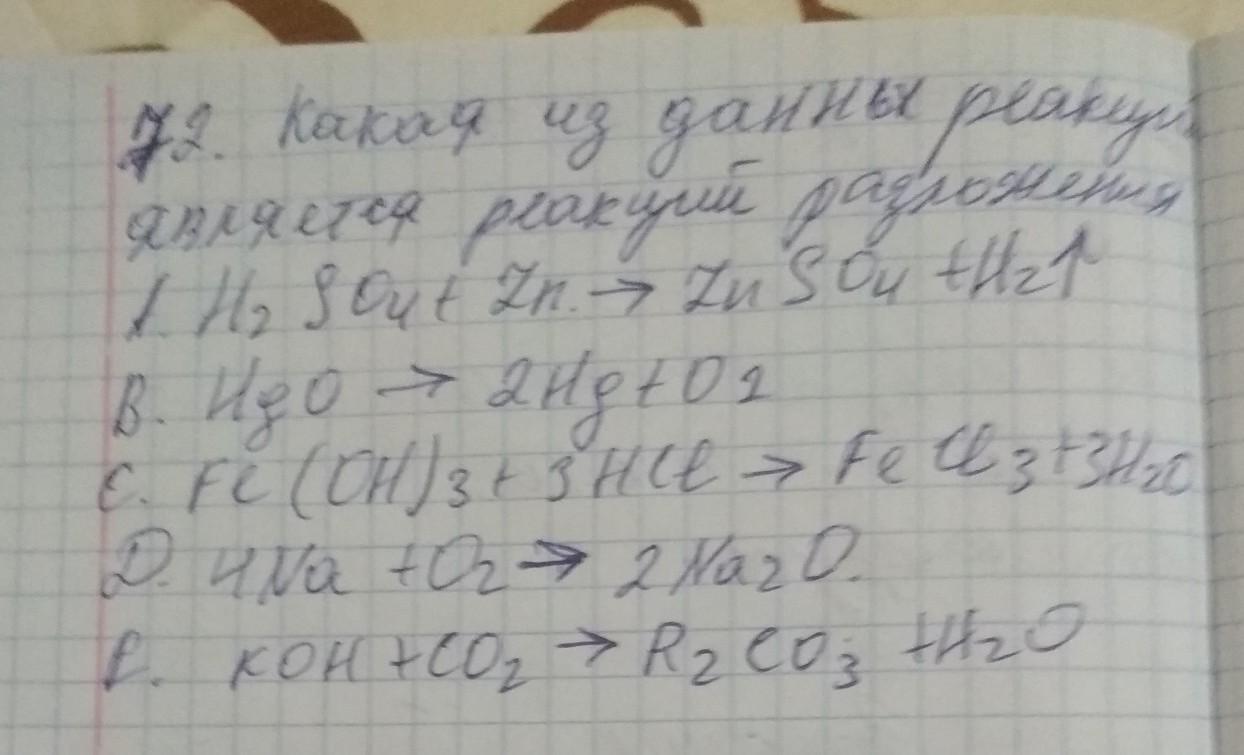 72. Какая из данны реакций
является реакций разложения
A. H₂SO₄ + Zn. → ZnSO₄ + H₂↑
B. HgO → 2Hg + O₂
C. Fe(OH)₃ + 3HCl → FeCl₃ + 3H₂O
D. 4Na + O₂ → 2Na₂O.
E. KOH + CO₂ → K₂CO₃ + H₂O